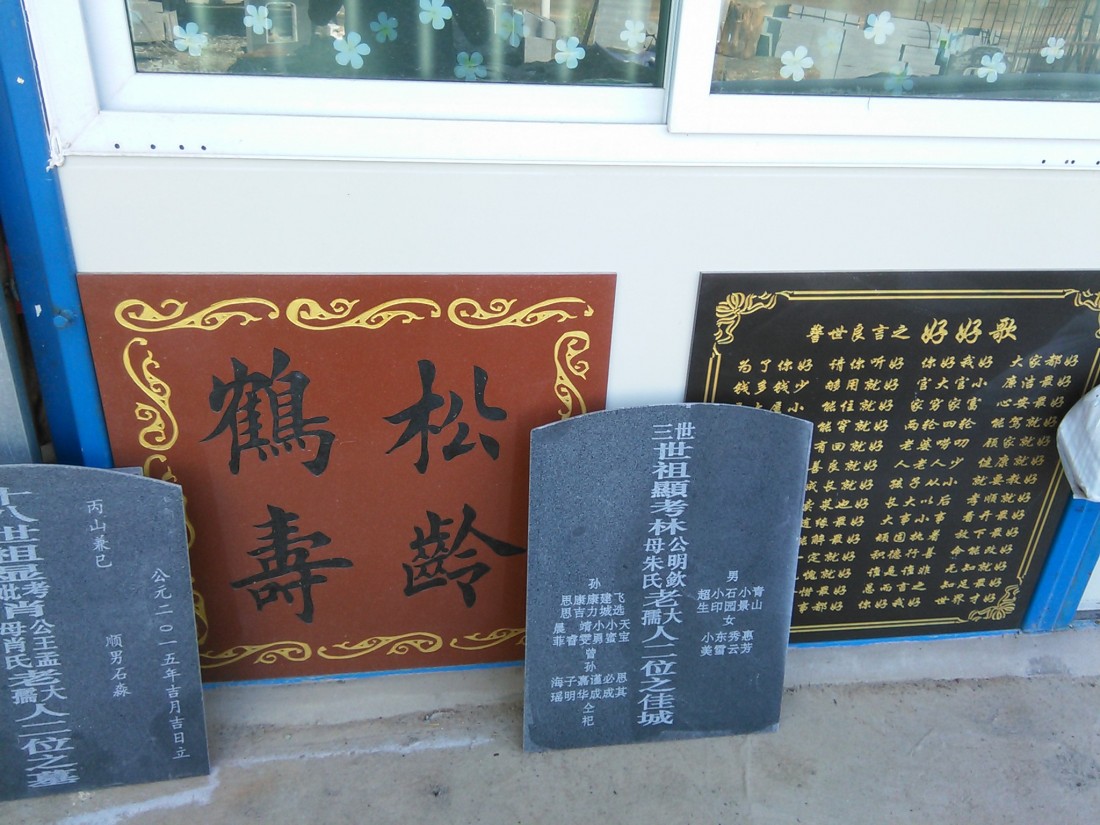 松龄
鹤寿
警世良言之 好好歌
为了你好 请你听好 你好我好 大家都好
钱多钱少 够用就好 官大官小 廉洁最好
大屋小 能住就好 家穷家富 心安最好
能穿就好 两轮四轮 能驾就好
有回就好 老婆唠叨 顾家就好
善良就好 人老人少 健康就好
成长就好 孩子从小 就要教好
卖菜也好 长大以后 孝顺就好
随缘最好 大事小事 看开最好
能解最好 顽固执着 放下最好
一定就好 积德行善 命能改好
愧就好 谁是谁非 天知就好
惜最好 总而言之 知足最好
事都好 你好我好 世界才好
三世
世祖顯考林公明欽大
母朱氏老孺人二位之佳城
男
青小石小超
山景园印生
女
惠秀东小
芳云雪美
孙
飞建康康思
选城力吉思
天小小靖晨
宝蜜勇雯睿菲
曾
孙
思必谨嘉子海
其成成华明瑶
仝
祀
丙山兼巳
十八世祖显考肖公王孟大
妣母肖氏老孺人二位之墓
顺男石森
公元二〇一五年吉月吉日立